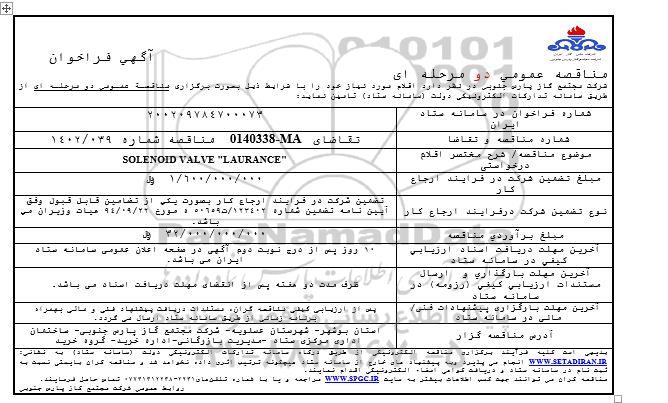 آگهي فراخوان
مناقصه عمومي دو مرحله اي
شركت مجتمع گاز پارس جنوبي در نظر دارد اقلام مورد نياز خود را با شرايط ذيل بصورت برگزاري مناقصة عمومي دو مرحله اي از
طريق سامانه تداركات الكترونيكي دولت (سامانه ستاد) تامين نمايد:
شماره فراخوان در سامانه ستاد ايران
۲۰۰۲۰۹۷۸۴۷۰۰۰۰۷۳
شماره مناقصه و تقاضا
تقاضاي 0140338-MA مناقصه شماره ۱۴۰۲/۰۳۹
موضوع مناقصه/ شرح مختصر اقلام درخواستي
SOLENOID VALVE "LAURANCE"
مبلغ تضمين شركت در فرايند ارجاع كار
۱/۶۰۰/۰۰۰/۰۰۰ ريال
نوع تضمين شركت درفرايند ارجاع كار
تضمين شركت در فرايند ارجاع كار بصورت يكي از تضامين قابل قبول وفق
آيين نامه تضمين شماره ۱۲۳۴۰۲/ت۵۰۶۵۹ ه مورخ ۹۴/۰۹/۲۲ هيات وزيران مي
باشد.
مبلغ برآوردي مناقصه
۳۲/۰۰۰/۰۰۰/۰۰۰ ريال
آخرين مهلت دريافت اسناد ارزيابي كيفي در سامانه ستاد
۱۰ روز پس از درج نوبت دوم آگهي در صفحه اعلان عمومي سامانه ستاد
ايران مي باشد.
آخرين مهلت بارگذاري و ارسال
مستندات ارزيابي كيفي (رزومه) در
سامانه ستاد
ظرف مدت دو هفته پس از انقضاي مهلت دريافت اسناد مي باشد.
آخرين مهلت بارگزاري پيشنهادات فني/
مالي در سامانه ستاد
پس از ارزيابي كيفي مناقصه گران، مستندات دريافت پيشنهاد فني و مالي بهمراه
برنامه زماني از طريق سامانه ستاد ارسال مي گردد.
آدرس مناقصه گزار
استان بوشهر- شهرستان عسلويه- شركت مجتمع گاز پارس جنوبي- ساختمان
اداري مركزي ستاد -مديريت بازرگاني-اداره خريد- گروه خريد
بديهي است كليه فرآيند برگزاري مناقصه الكترونيكي از طريق درگاه سامانه تداركات الكترونيكي دولت (سامانه ستاد) به نشاني:
WWW.SETADIRAN.IR انجام مي پذيرد و به پيشنهاد هاي خارج از سامانه ستاد هيچگونه ترتيب اثري داده نخواهد شد و مناقصه گران بايستي نسبت به
ثبت نام در سامانه ستاد و دريافت گواهي امضاء الكترونيكي اقدام نمايند.
مناقصه گران مي توانند جهت كسب اطلاعات بيشتر به سايت WWW.SPGC.IR مراجعه و يا با شماره تلفن‌هاي ۰۷۷۳۱۳۱۲۲۳۸-۲۲۳۱ تماس حاصل فرمايند.
روابط عمومي شركت مجتمع گاز پارس جنوبي